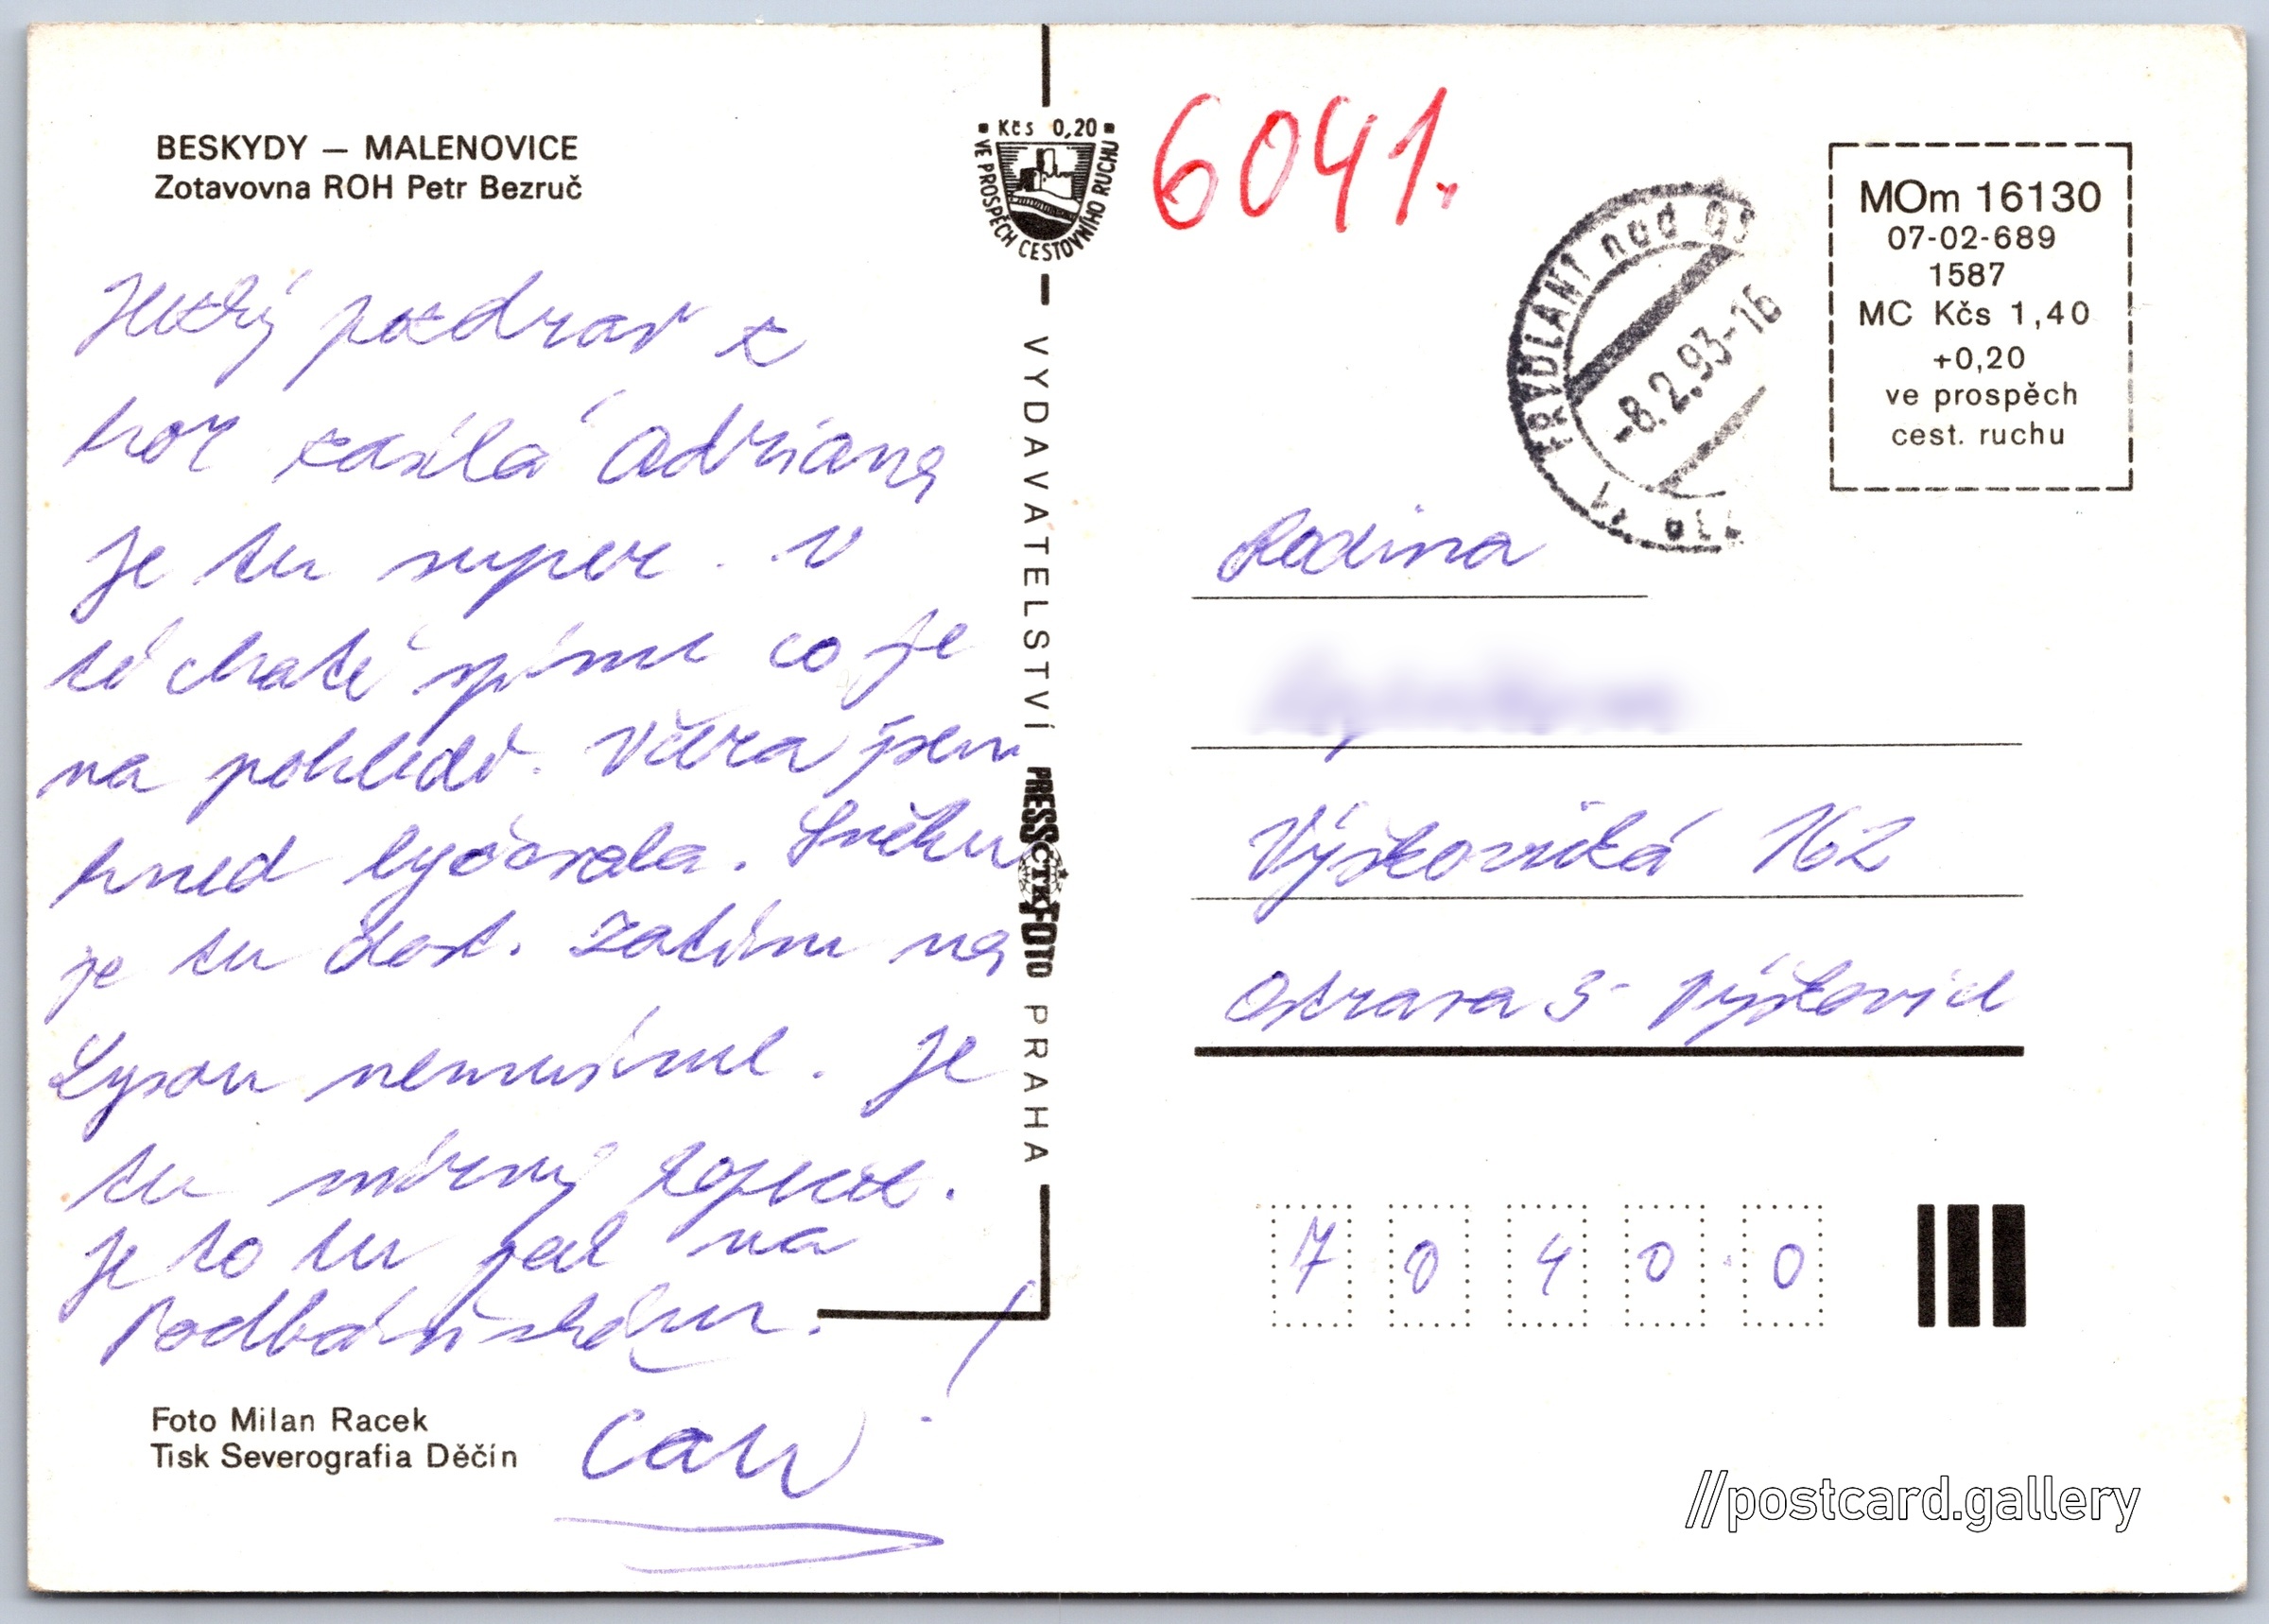 BESKYDY — MALENOVICE
Zotavovna ROH Petr Bezruč
Hezký pozdrav z
hor zasílá Adriana
je tu super. V
té chatě spíme co je
na pohledě. Včera jsem
hned lyžovala. Sněhu
je tu dost. Zatím na
Lysou nemusíme. Je
tu mírný kopec.
je to tu jak na
Podbánském.
!
Foto Milan Racek
Tisk Severografia Děčín
Kčs 0,20
VE PROSPĚCH CESTOVNÍHO RUCHU
VYDAVATELSTVÍ PRESSFOTO PRAHA
ČTK
6041.
FRÝDLANT nad OS
-8.2.93-16
MOm 16130
07-02-689
1587
MC Kčs 1,40
+0,20
ve prospěch
cest. ruchu
Rodina
Výškovická 162
Ostrava 3- Výškovice
70400
//postcard.gallery